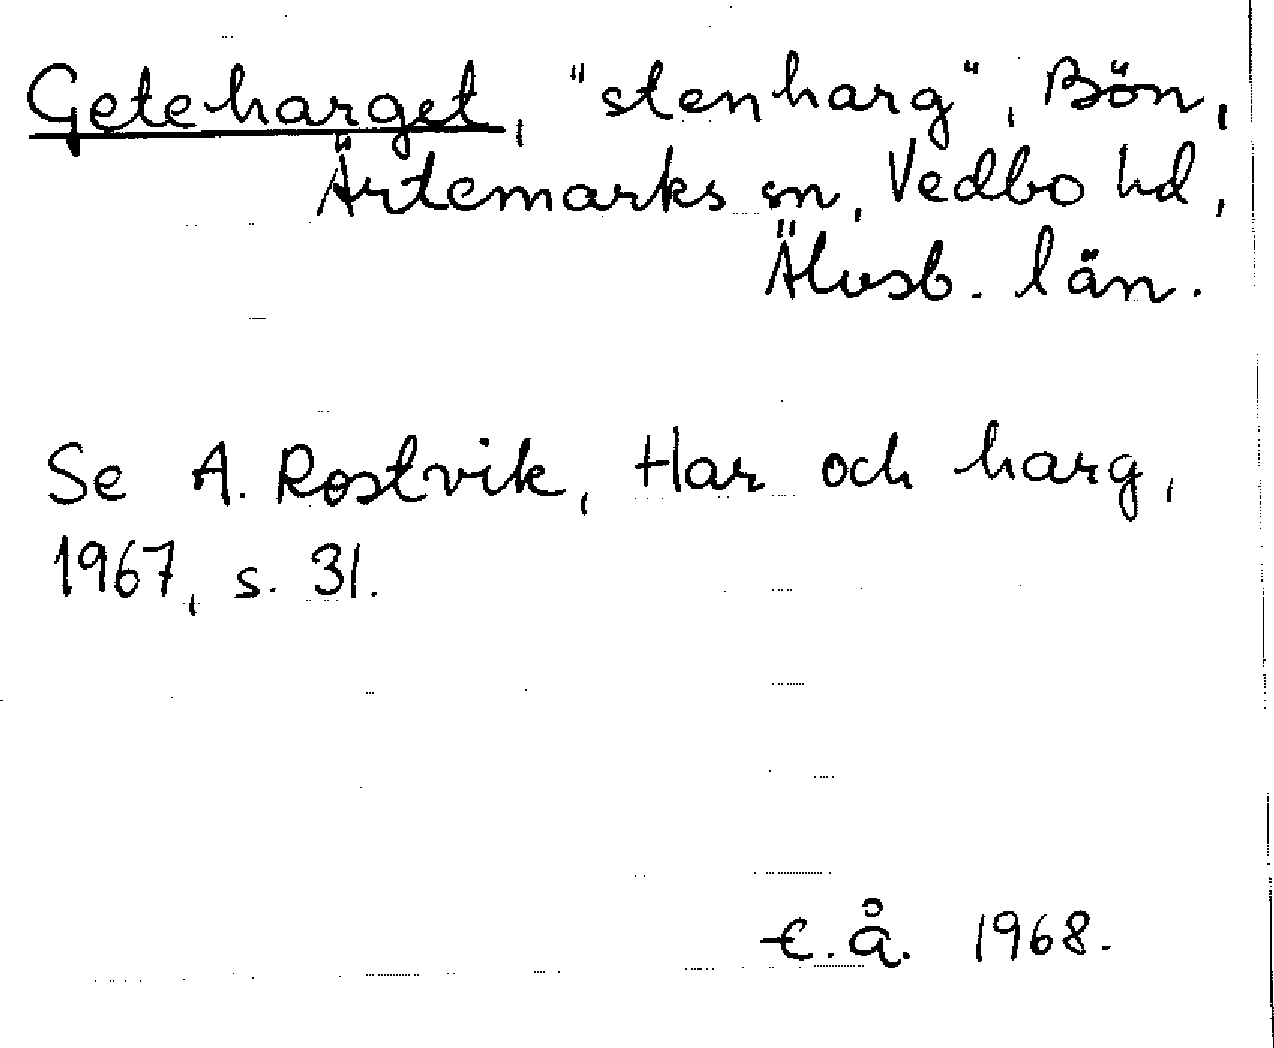 Geteharget, "stenharg", Bön,
Ärtemarks sn, Vedbo hd,
Älvsb. län.
Se A. Rostvik, Har och harg,
1967, s. 31.
E. Å. 1968.